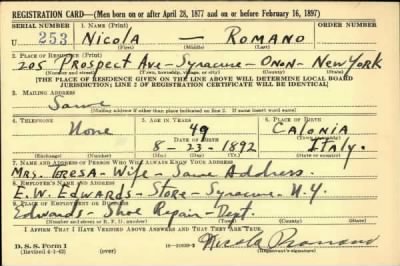 REGISTRATION CARD—(Men born on or after April 28, 1877 and on or before February 16, 1897)
SERIAL NUMBER 1. NAME (Print) ORDER NUMBER
U 253 Nicola — Romano
(First) (Middle) (Last)
2. PLACE OF RESIDENCE (Print)
205 Prospect Ave - Syracuse - Onon - New York
(Number and street) (Town, township, village, or city) (County) (State)
[THE PLACE OF RESIDENCE GIVEN ON THE LINE ABOVE WILL DETERMINE LOCAL BOARD
JURISDICTION; LINE 2 OF REGISTRATION CERTIFICATE WILL BE IDENTICAL]
3. MAILING ADDRESS
Same
[Mailing address if other than place indicated on line 2. If same insert word same]
4. TELEPHONE 5. AGE IN YEARS 6. PLACE OF BIRTH
None 49 Calonia
DATE OF BIRTH (Town or county)
8 - 23 - 1892 Italy.
(Exchange) (Number) (Mo.) (Day) (Yr.) (State or country)
7. NAME AND ADDRESS OF PERSON WHO WILL ALWAYS KNOW YOUR ADDRESS
Mrs. Teresa - Wife - Same Address.
8. EMPLOYER'S NAME AND ADDRESS
E. W. Edwards - Store - Syracuse N.Y.
9. PLACE OF EMPLOYMENT OR BUSINESS
Edwards - Shoe Repair - Dept.
(Number and street or R. F. D. number) (Town) (County) (State)
I AFFIRM THAT I HAVE VERIFIED ABOVE ANSWERS AND THAT THEY ARE TRUE.
D. S. S. Form 1
(Revised 4-1-42) (over) Nicola Romano
(Registrant's signature)